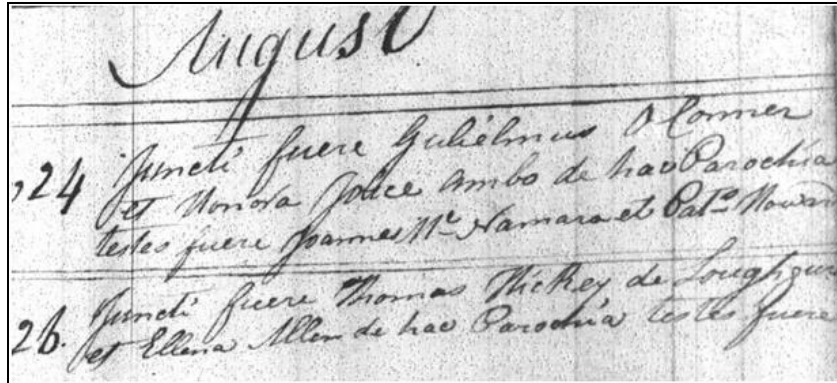 August
24 Juncti fuere Guliélmus O Conner
et Honora Joice ambo de hac Parochia
testes fuere Joannes Mc Namara et Patt Howard
26. Juncti fuere Thomas Hickey de Loughgur
et Ellena Allen de hac Parochia testes fuere